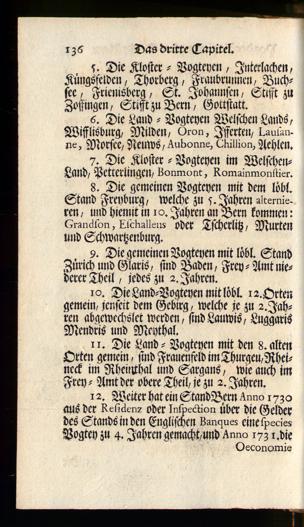 136 Das dritte Capitel.
5. Die Kloster-Vogteyen, Interlachen,
Küngsfelden, Thorberg, Fraubrunnen, Buch-
see, Frienisberg, St. Johannsen, Stifft zu
Zoffingen, Stifft zu Bern, Gottstatt.
6. Die Land-Vogteyen Welschen Lands,
Wifflisburg, Milden, Oron, Jfferten, Lausan-
ne, Morsee, Neuws, Aubonne, Chillion, Aehlen.
7. Die Kloster-Vogteyen im Welschen-
Land, Petterlingen, Bonmont, Romainmonstier.
8. Die gemeinen Vogteyen mit dem löbl.
Stand Freyburg, welche zu 5. Jahren alternie-
ren, und hiemit in 10. Jahren an Bern kommen:
Grandson, Eschallens oder Tscherlitz, Murten
und Schwartzenburg.
9. Die gemeinen Vogteyen mit löbl. Stand
Zürich und Glaris, sind Baden, Frey-Amt nie-
derer Theil, jedes zu 2. Jahren.
10. Die Land-Vogteyen mit löbl. 12. Orten
gemein, jenseit dem Gebürg, welche je zu 2. Jah-
ren abgewechslet werden, sind Lauwis, Luggaris
Mendris und Meythal.
11. Die Land-Vogteyen mit den 8. alten
Orten gemein, sind Frauenfeld im Thurgeu, Rhei-
neck im Rheinthal und Sargans, wie auch im
Frey-Amt der obere Theil, je zu 2. Jahren.
12. Weiter hat ein Stand Bern Anno 1730
aus der Residenz oder Inspection über die Gelder
des Stands in den Englischen Banques eine species
Vogtey zu 4. Jahren gemacht, und Anno 1731. die
Oeconomie